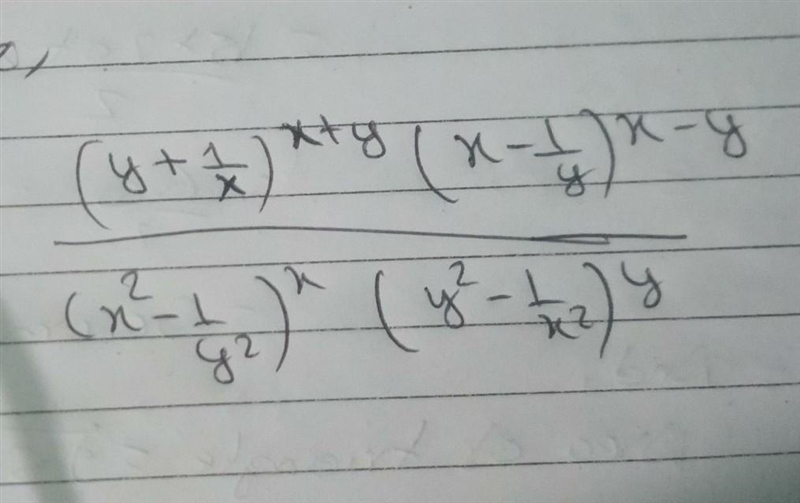 (y + 1/x)^x+y (x - 1/y)^x-y
(x² - 1/y²)^x (y² - 1/x²)^y